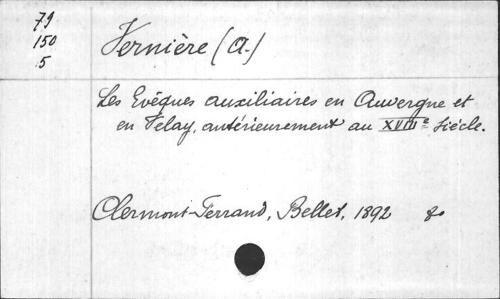 79
150
5
Vernière (A.)
Les Evêques auxiliaires en Auvergne et
en Velay, antérieurement au XVIIIe Siècle.
Clermont-Ferrand, Bellet, 1892 8o